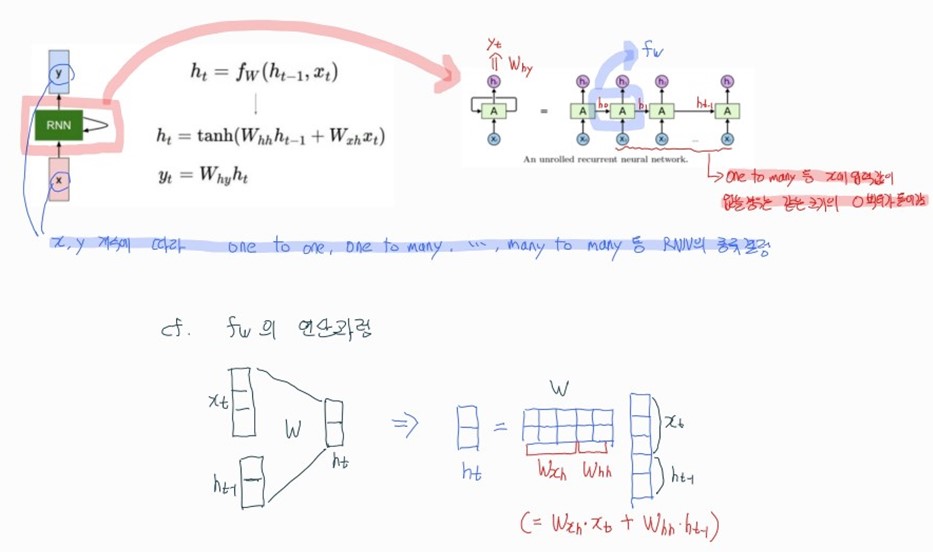 y
RNN
x
h_t = f_W(h_{t-1}, x_t)
h_t = tanh(W_{hh}h_{t-1} + W_{xh}x_t)
y_t = W_{hy}h_t
y_t
W_{hy}
f_w
h_t h_0 h_1 h_2 h_t
A = A h_0 A h_1 A h_{t-1} A
An unrolled recurrent neural network.
one to many 등 x의 입력값이
없을 경우는 같은 크기의 0 벡터가 들어감
x, y 개수에 따라 one to one, one to many, ..., many to many 등 RNN의 종류 결정
cf. f_w 의 연산과정
x_t
W
h_{t-1}
h_t
⇒
h_t
=
W
W_{xh} W_{hh}
x_t
h_{t-1}
(= W_{xh}·x_t + W_{hh}·h_{t-1})